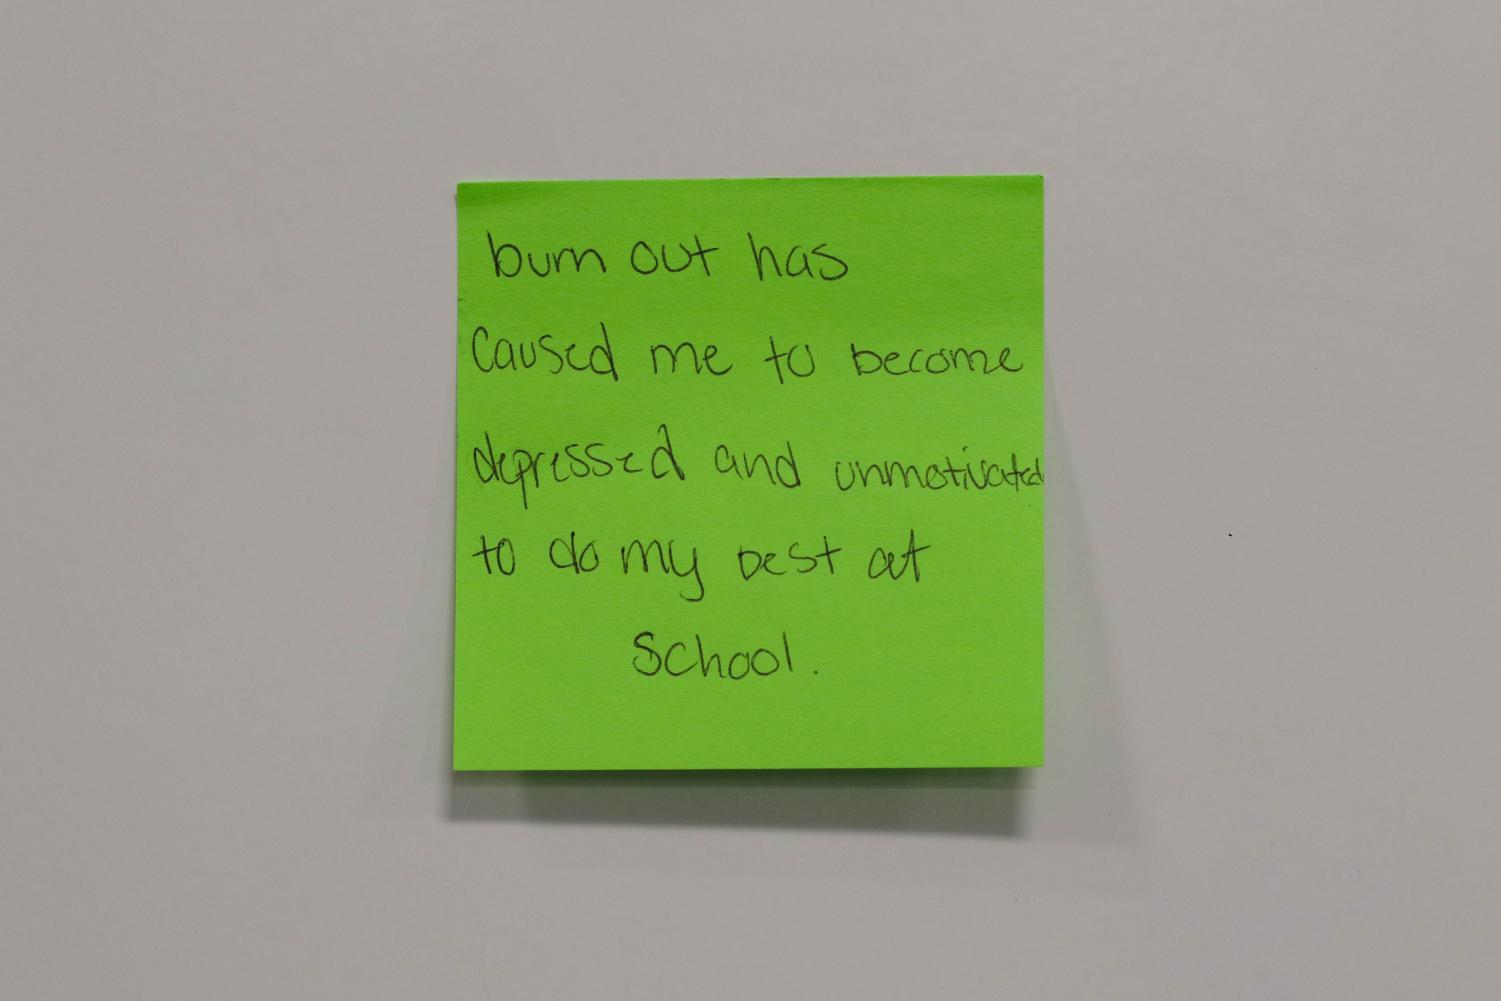 burn out has
caused me to become
depressed and unmotivated
to do my best at
school.